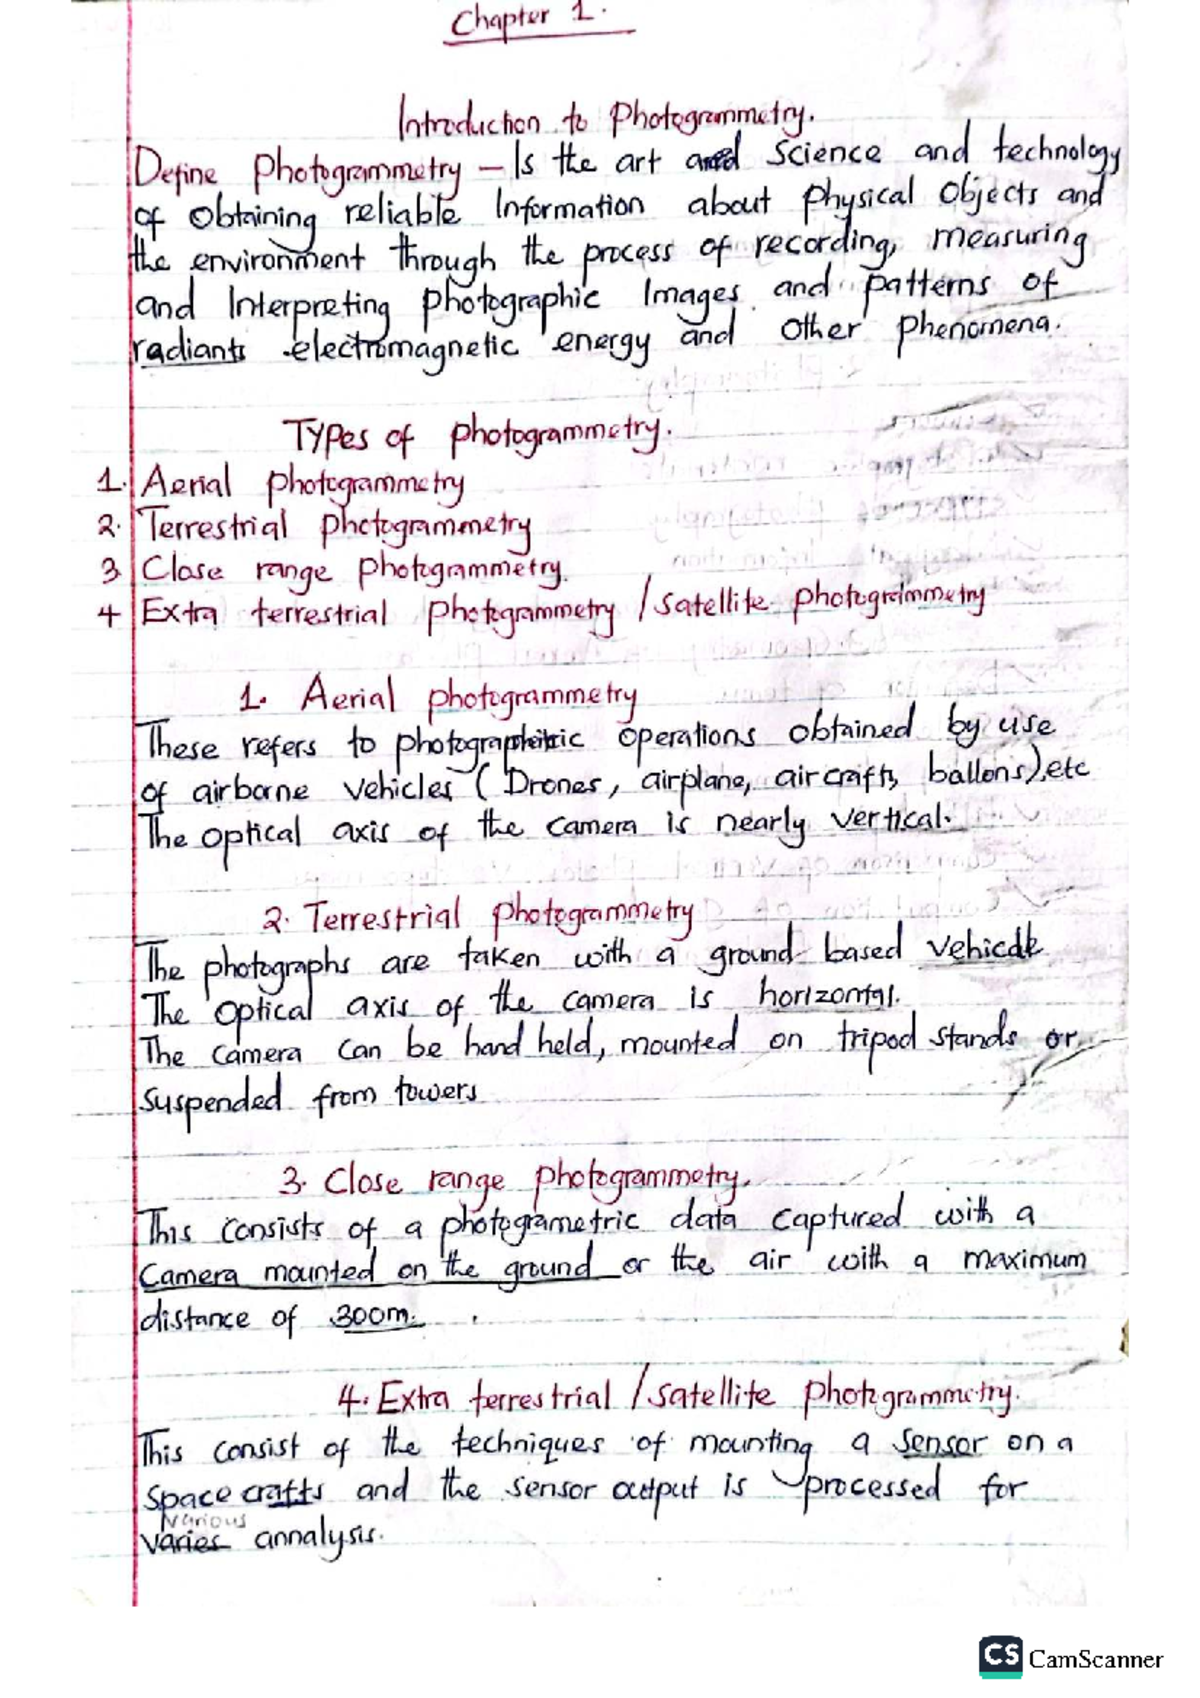 Chapter 1.
Introduction to Photogrammetry.
Define Photogrammetry – Is the art and Science and technology
of Obtaining reliable Information about Physical Objects and
the environment through the process of recording, measuring
and Interpreting photographic Images and patterns of
radiants electromagnetic energy and Other phenomena.
Types of photogrammetry.
1. Aerial photogrammetry
2. Terrestrial photogrammetry
3 Close range photogrammetry.
4 Extra terrestrial photogrammetry / satellite photogrammetry
1. Aerial photogrammetry
These refers to operations obtained by use
of airborne vehicles (Drones, airplane, air crafts, ballons).etc
The optical axis of the camera is nearly vertical.
2. Terrestrial photogrammetry
The photographs are taken with a ground based
The Optical axis of the camera is horizontal.
The camera can be hand held, mounted on tripod stands or
suspended from towers
3. Close range photogrammetry.
This consists of a photogrametric data captured with a
Camera mounted on the ground or the air with a maximum
distance of 300m.
4. Extra terrestrial / satellite photogrammetry.
This consist of the techniques of mounting a sensor on a
space crafts and the sensor output is processed for
various
varies annalysis.
CS CamScanner